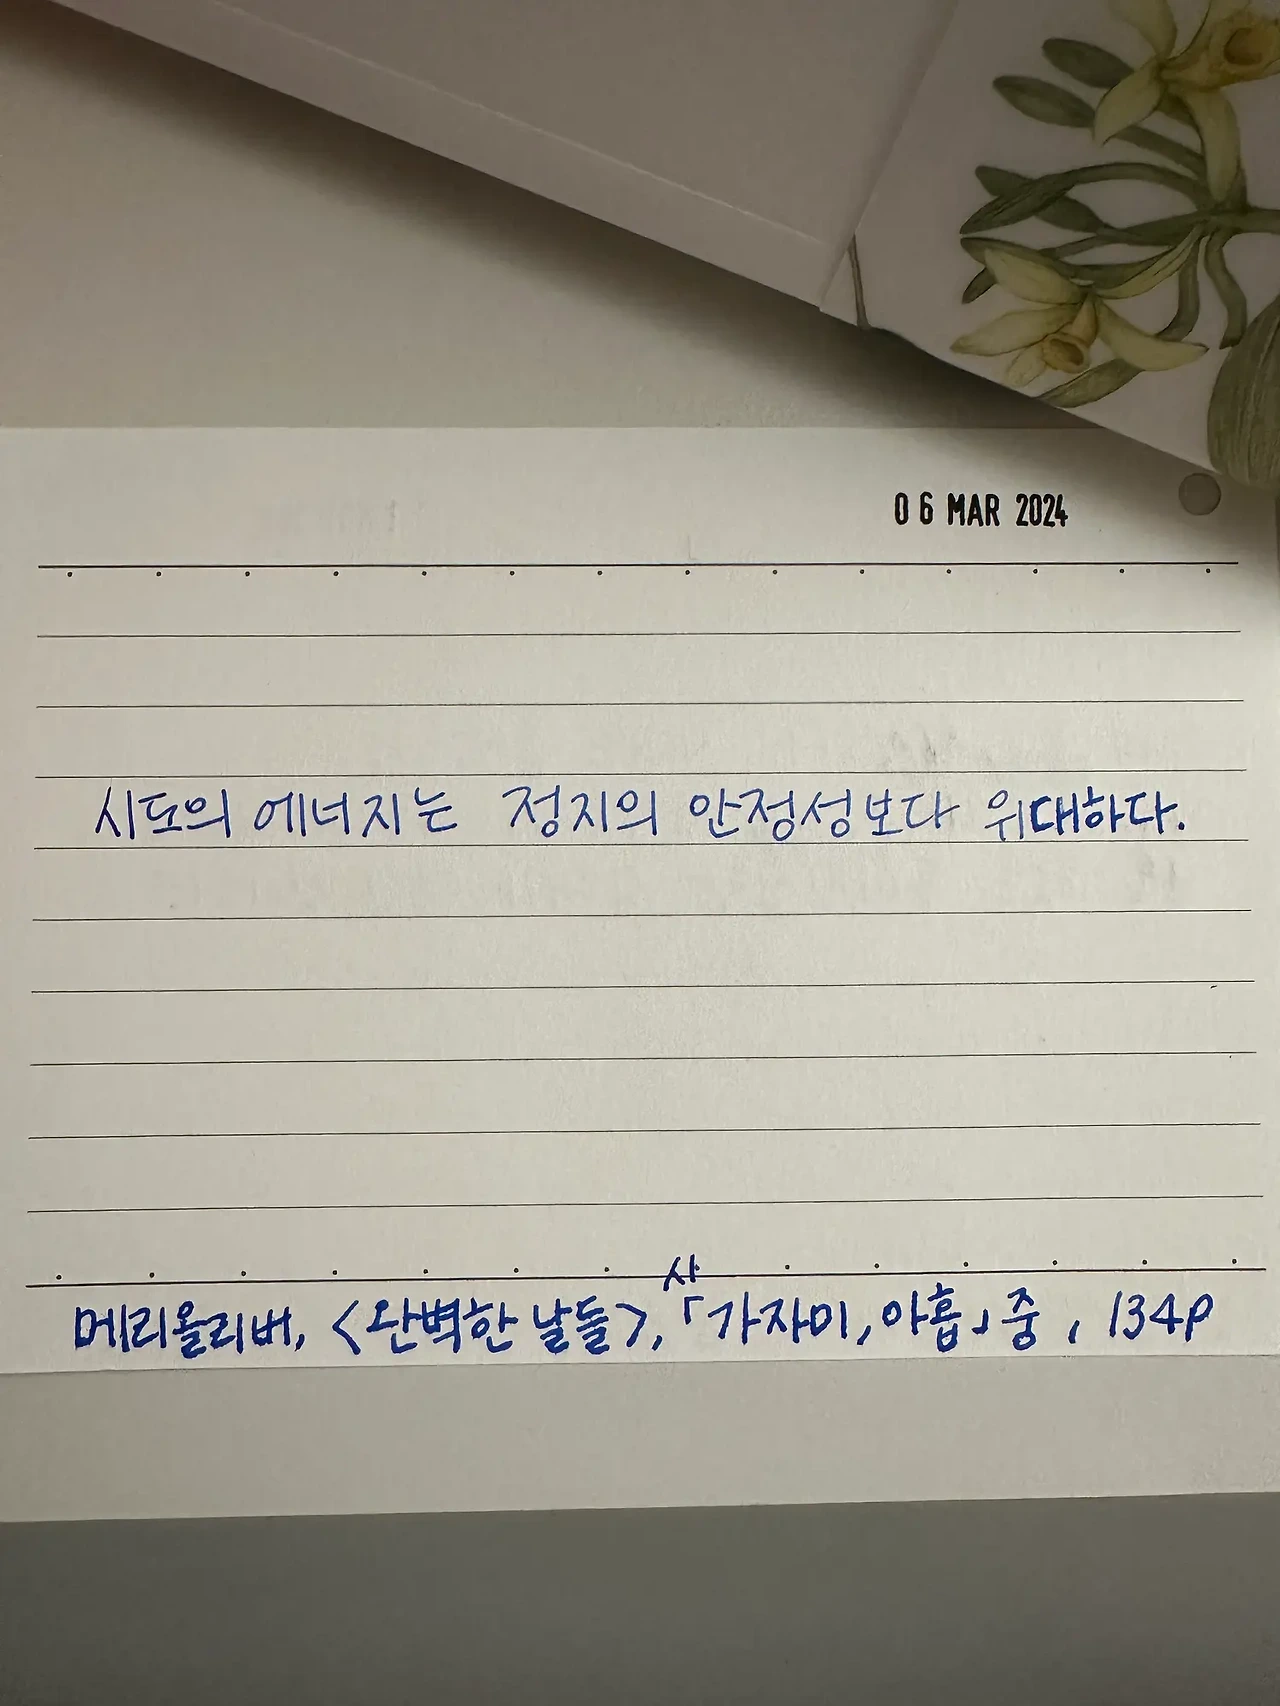 06 MAR 2024
시도의 에너지는 정지의 안정성보다 위대하다.
시
메리올리버, <완벽한 날들>, 「가자미, 아홉」 중, 134p